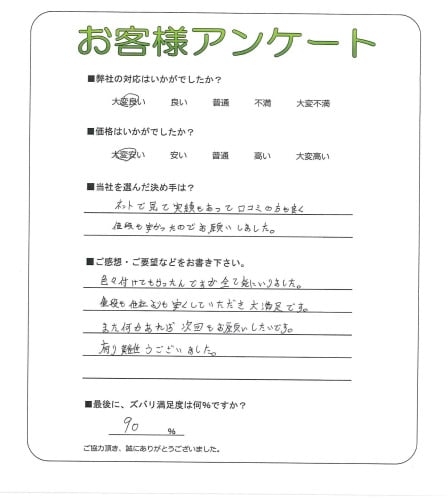 お客様アンケート
■弊社の対応はいかがでしたか？
大変良い 良い 普通 不満 大変不満
■価格はいかがでしたか？
大変安い 安い 普通 高い 大変高い
■当社を選んだ決め手は？
ネットで見て実績もあって口コミの方も良く
値段も安かったのでお願いしました。
■ご感想・ご要望などをお書き下さい。
色々付けてもらったんですが全て気にいりました。
値段も他社よりも安くしていただき大満足です。
また何かあれば次回もお願いしたいです。
有り難うございました。
■最後に、ズバリ満足度は何％ですか？
90 %
ご協力頂き、誠にありがとうございました。